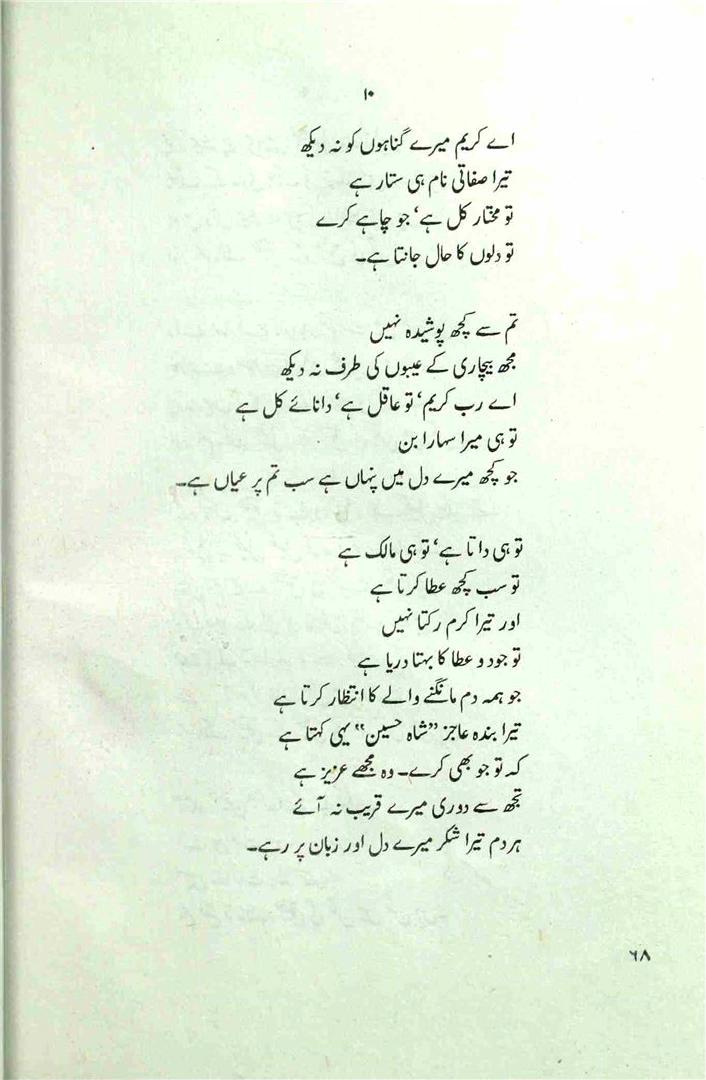 ۱۰
اے کریم میرے گناہوں کو نہ دیکھ
تیرا صفاتی نام ہی ستار ہے
تو مختار کل ہے، جو چاہے کرے
تو دلوں کا حال جانتا ہے۔
تم سے کچھ پوشیدہ نہیں
مجھ بیچاری کے عیبوں کی طرف نہ دیکھ
اے رب کریم، تو عاقل ہے، دانائے کل ہے
تو ہی میرا سہارا بن
جو کچھ میرے دل میں پنہاں ہے سب تم پر عیاں ہے۔
تو ہی داتا ہے، تو ہی مالک ہے
تو سب کچھ عطا کرتا ہے
اور تیرا کرم رکتا نہیں
تو جود و عطا کا بہتا دریا ہے
جو ہمہ دم مانگنے والے کا انتظار کرتا ہے
تیرا بندہ عاجز ”شاہ حسین“ یہی کہتا ہے
کہ تو جو بھی کرے۔ وہ مجھے عزیز ہے
تجھ سے دوری میرے قریب نہ آئے
ہر دم تیرا شکر میرے دل اور زبان پر رہے۔
۶۸